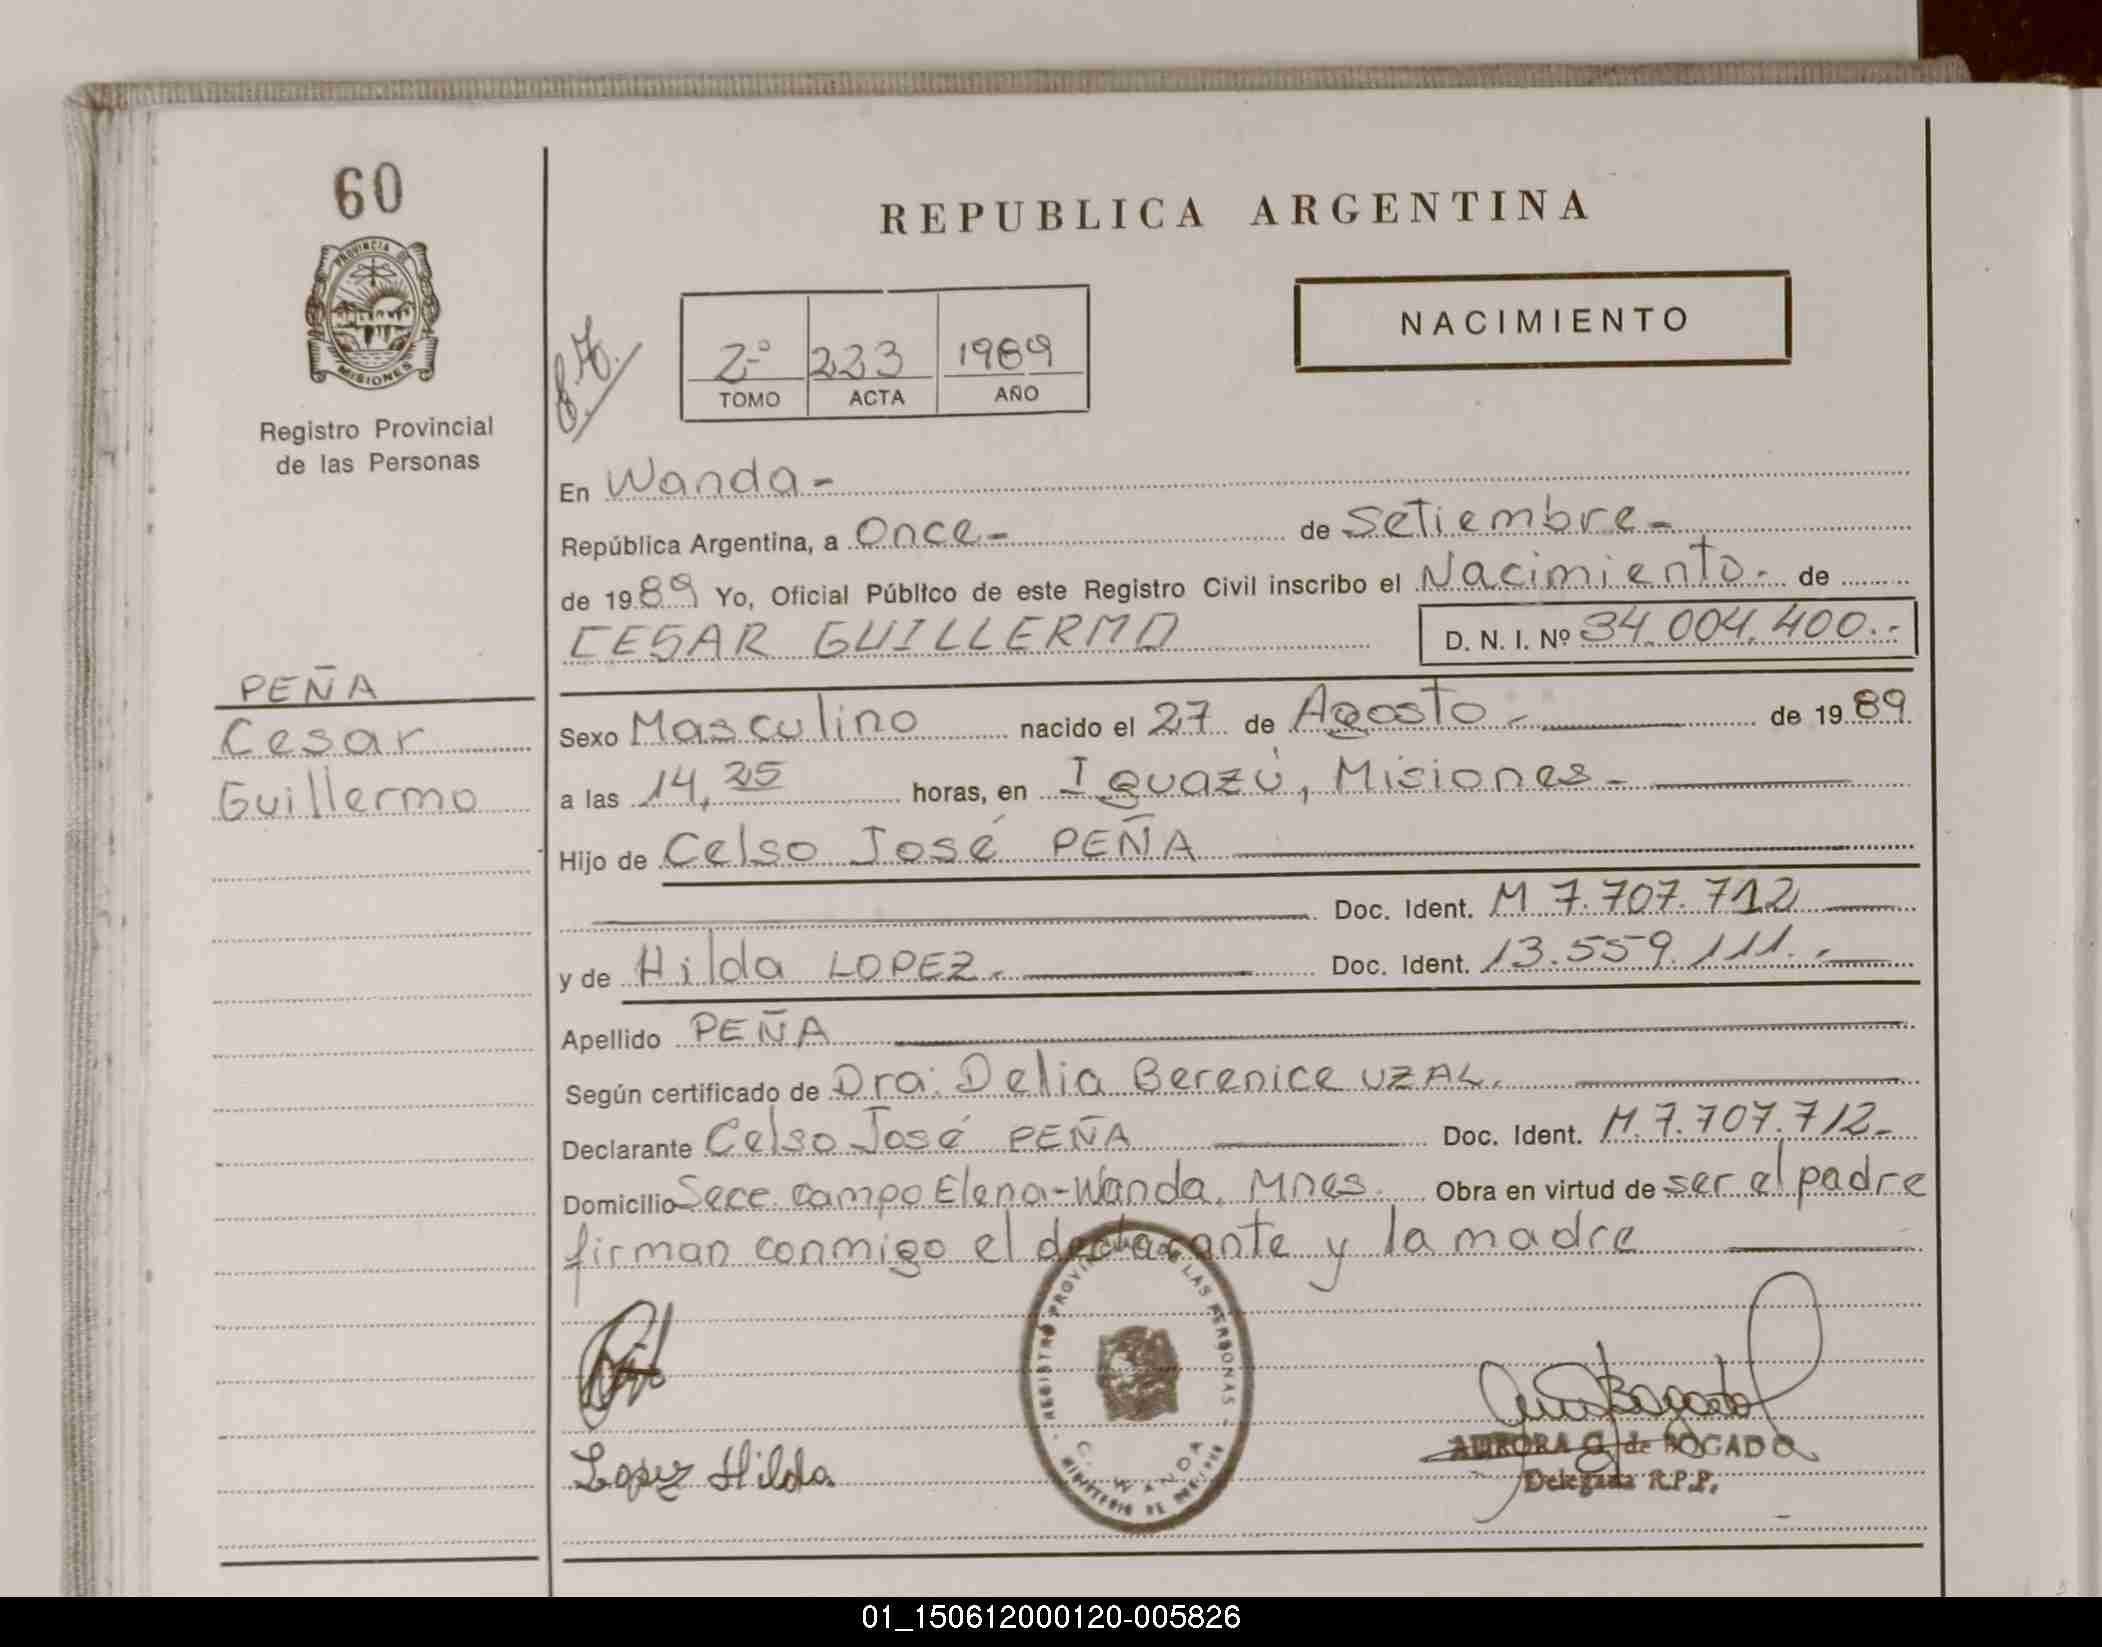 60
PROVINCIA DE
MISIONES
Registro Provincial
de las Personas
REPUBLICA ARGENTINA
NACIMIENTO
2º 223 1989
TOMO ACTA AÑO
En Wanda-
República Argentina, a Once- de Setiembre-
de 1989 Yo, Oficial Público de este Registro Civil inscribo el Nacimiento- de
CESAR GUILLERMO D. N. I. Nº 34.004.400.-
PEÑA
Cesar
Guillermo
Sexo Masculino nacido el 27 de Agosto - de 1989
a las 14,25 horas, en Iguazú, Misiones-
Hijo de Celso José PEÑA
Doc. Ident. M 7.707.712
y de Hilda LOPEZ. Doc. Ident. 13.559.111.-
Apellido PEÑA
Según certificado de Dra: Delia Berenice UZAL.
Declarante Celso José PEÑA Doc. Ident. M.7.707.712-
Domicilio Secc. campo Elena-Wanda, Mnes. Obra en virtud de ser el padre
firman conmigo el declarante y la madre
REGISTRO PROVINCIAL DE LAS PERSONAS
WANDA
MINISTERIO DE
Lopez Hilda.
AURORA G. de BOGADO
Delegada R.P.P.
01_150612000120-005826